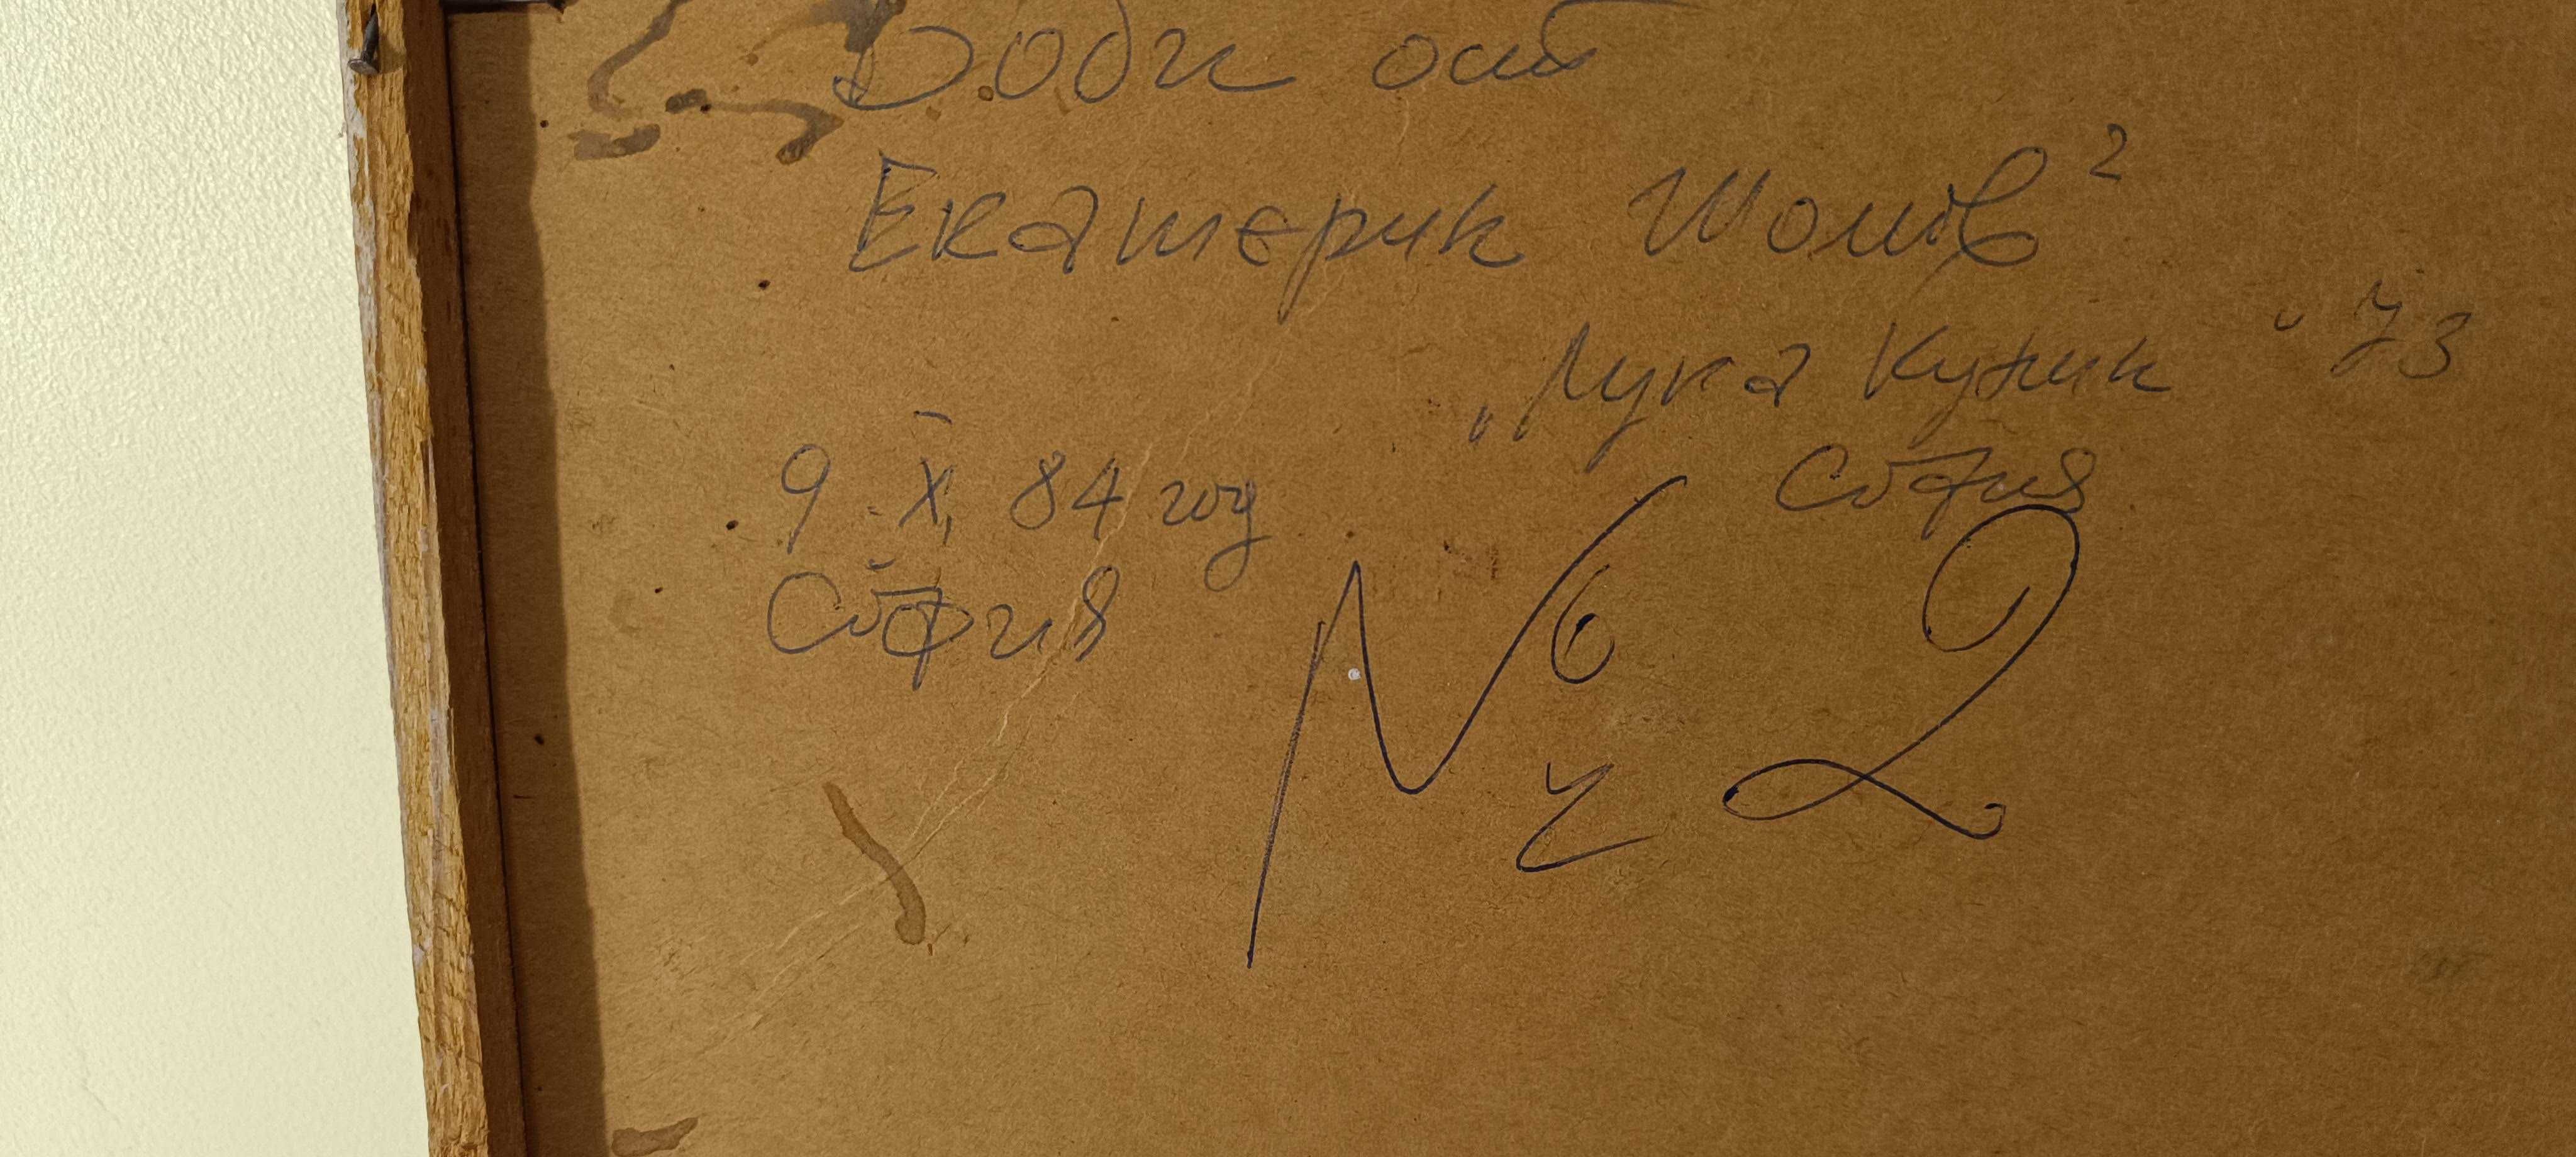 Доди от
Екатерин Шотов²
„Лука Кужик“ 73
София
9. X. 84 год
София
№ 2